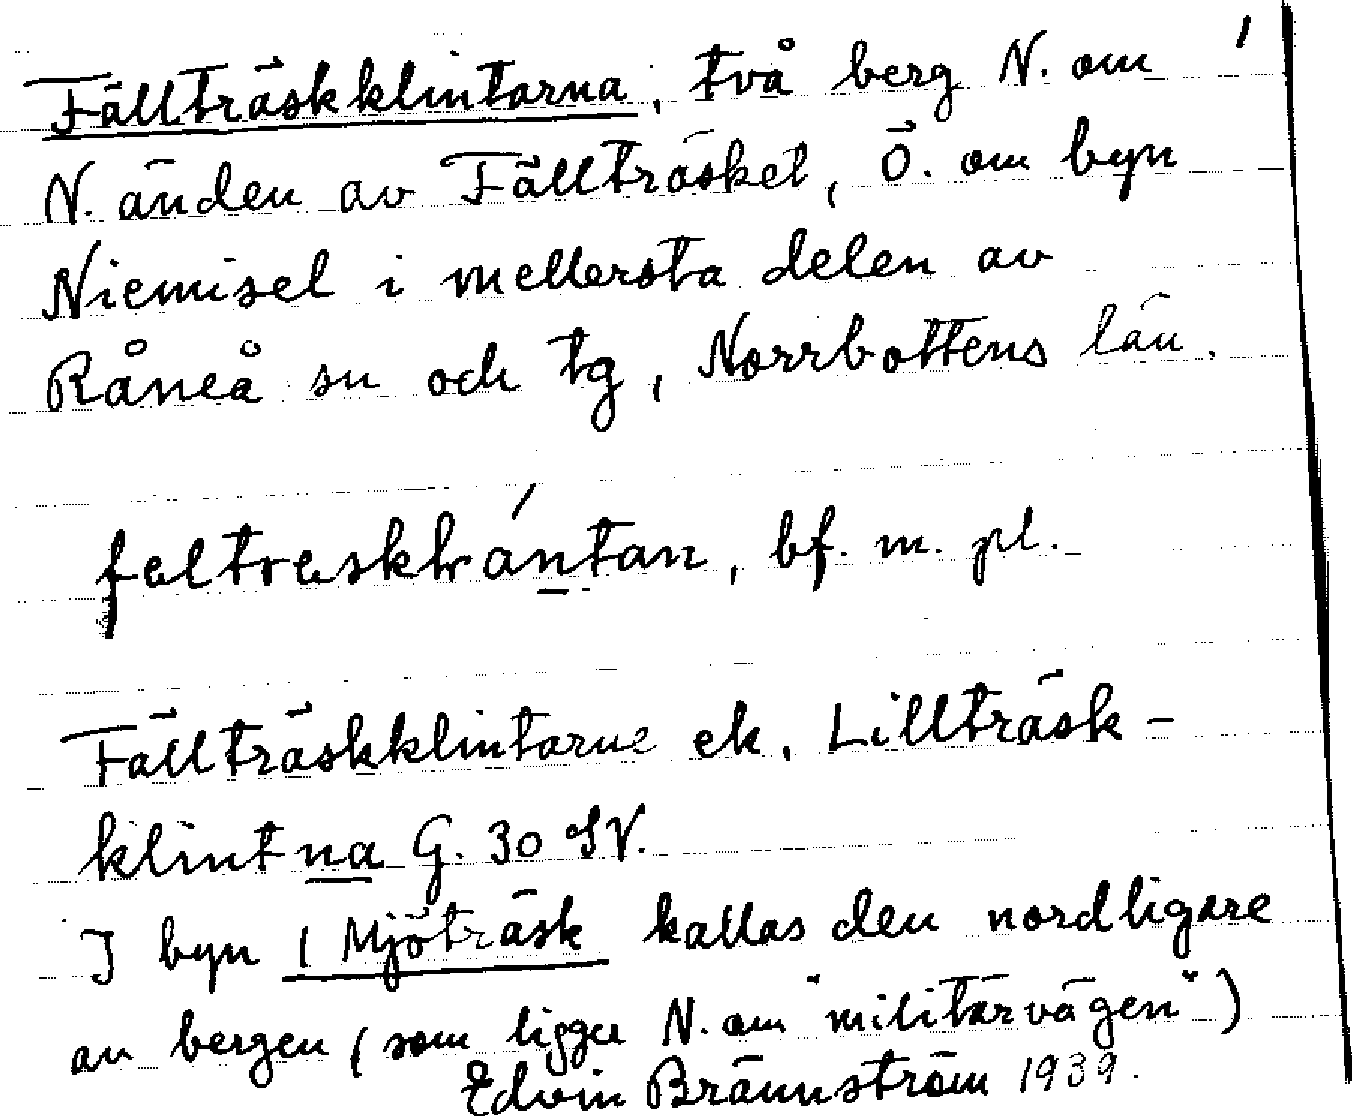 Fällträskklintarna, två berg N. om 1
N. änden av Fällträsket, Ö. om byn
Niemisel i mellersta delen av
Råneå sn och tg, Norrbottens län.
bf. m. pl.
Fällträskklintarne ek. Lillträsk-
klintna G. 30 SV.
I byn 1 Mjöträsk kallas den nordligare
av bergen (som ligger N. om "militärvägen")
Edvin Brännström 1939.